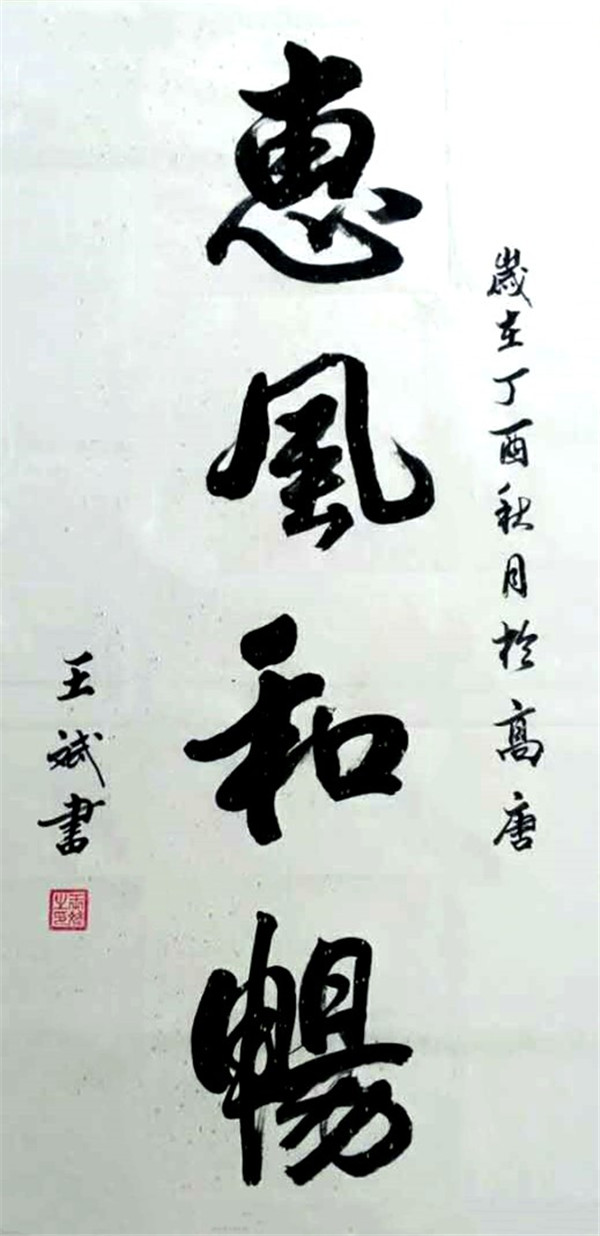 歲在丁酉秋月於高唐
惠風和暢
王斌書